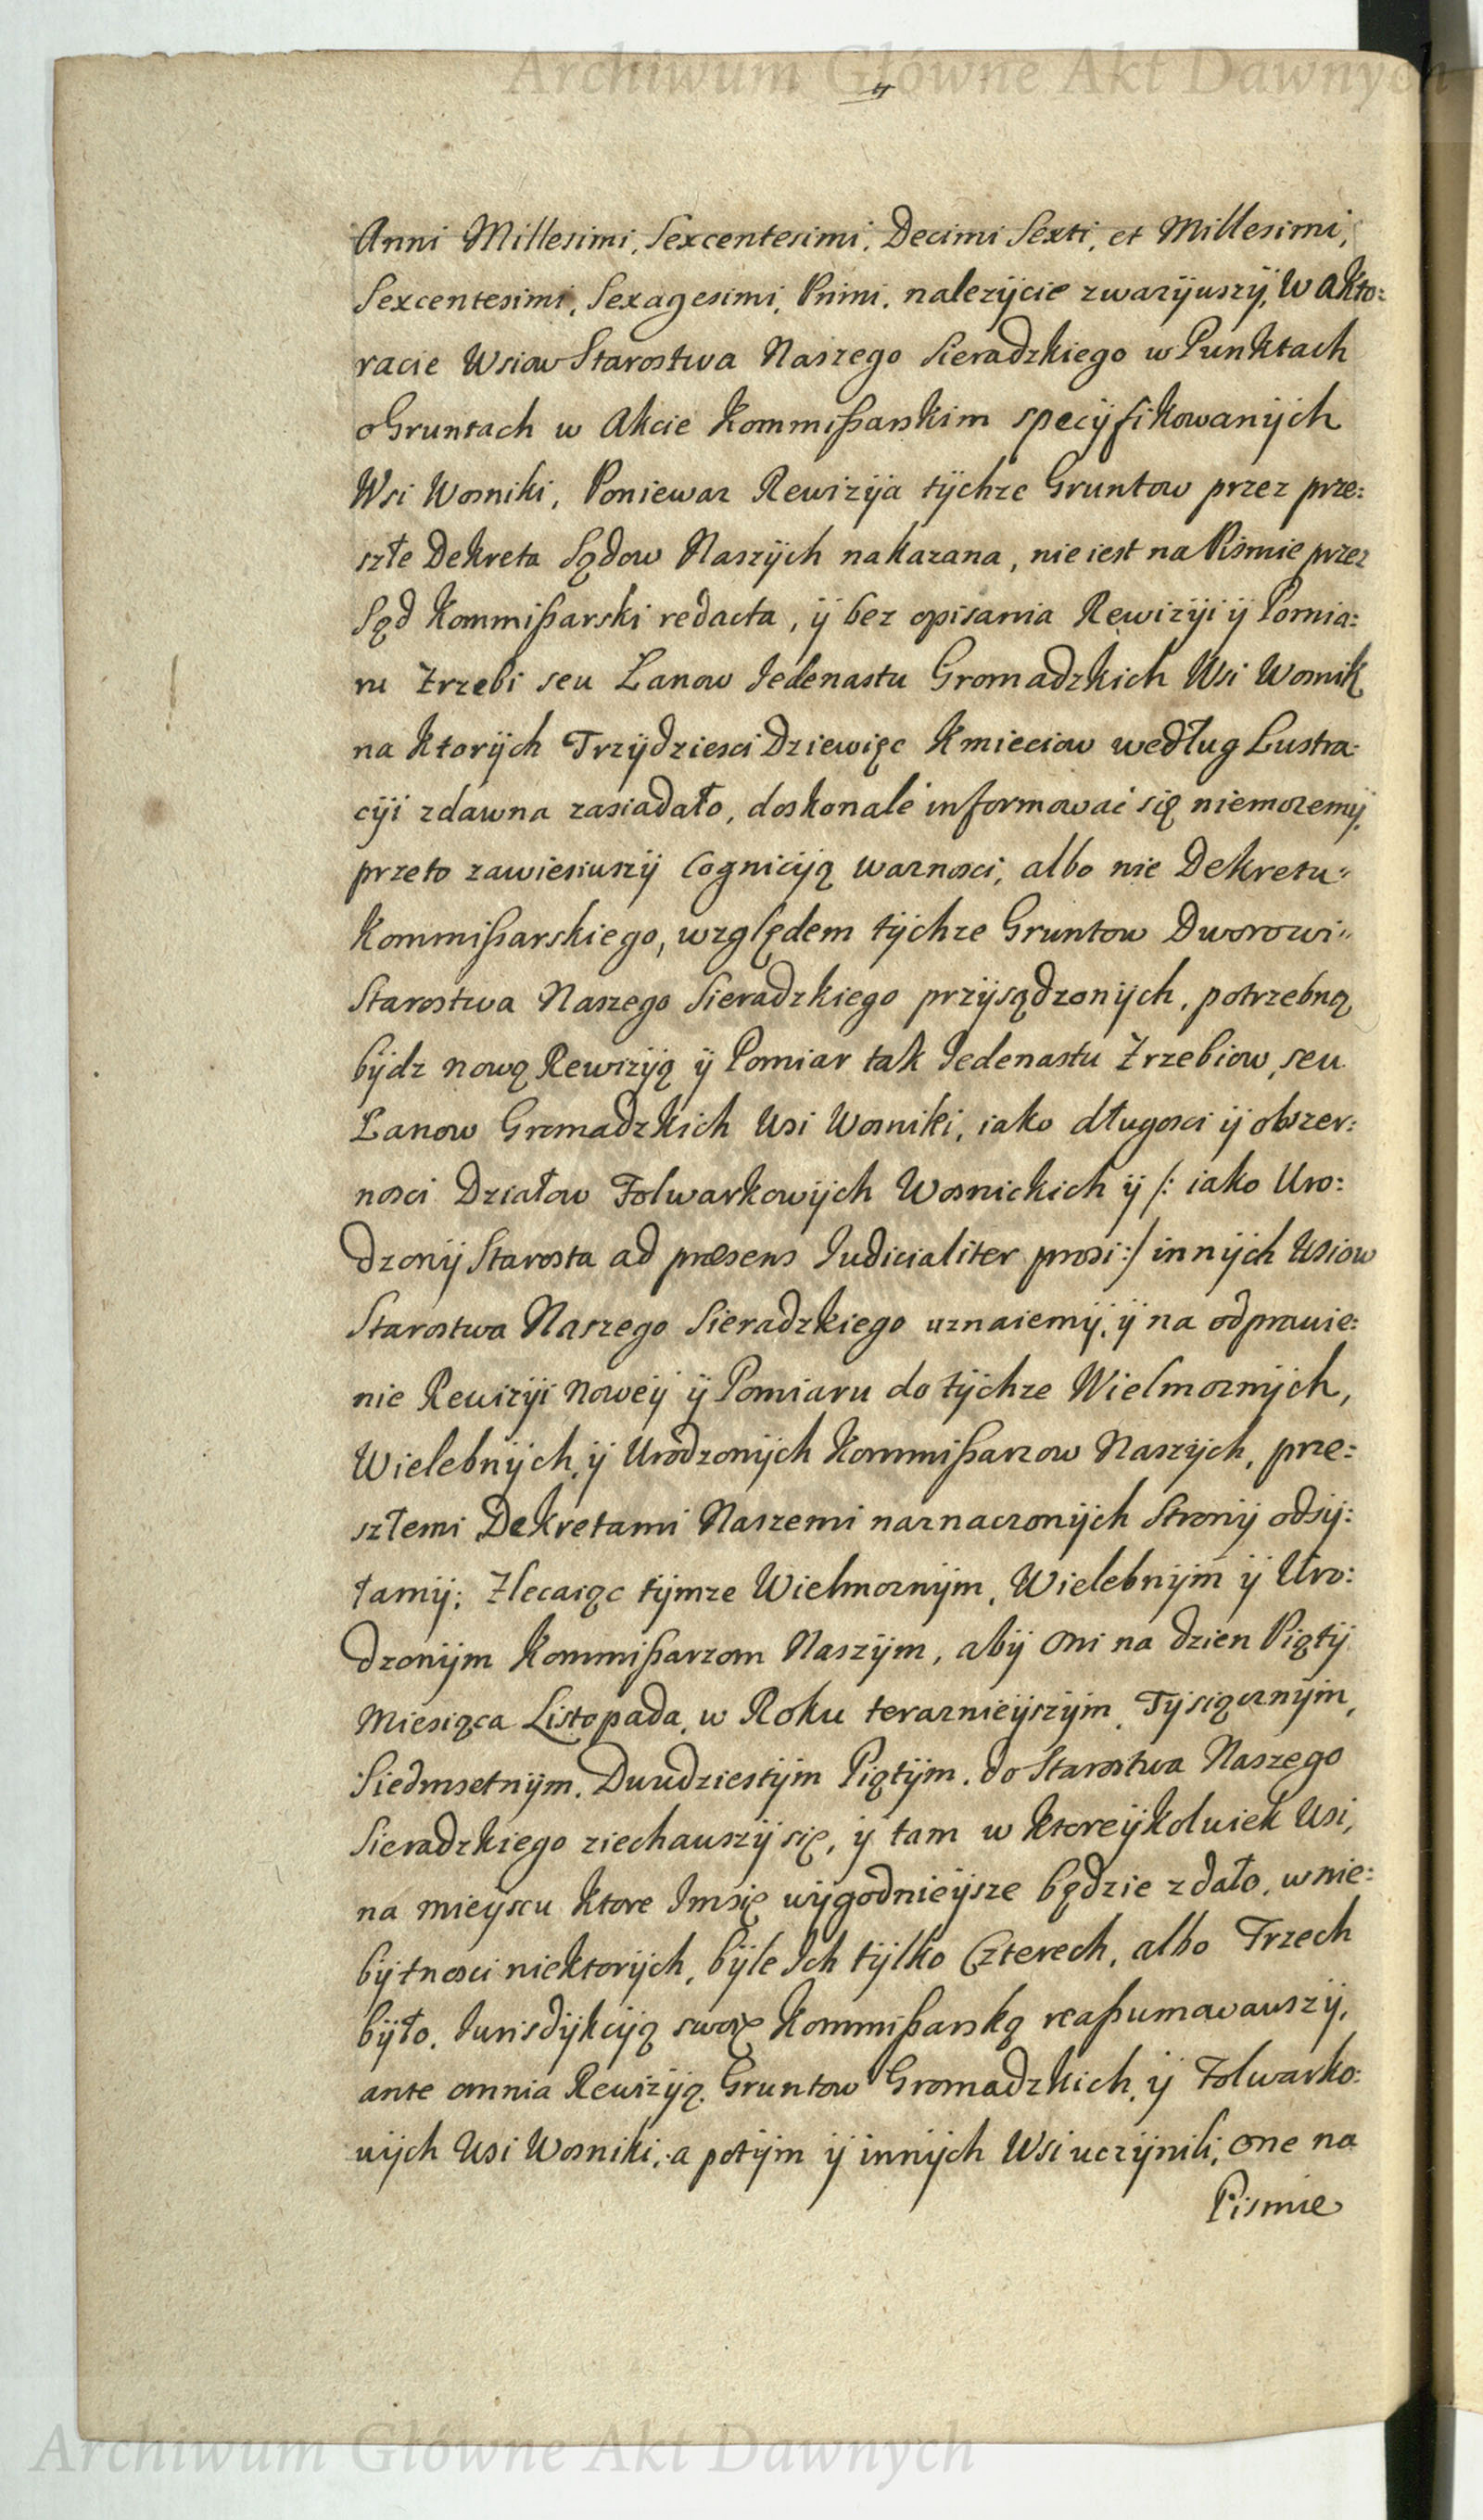 Archiwum Główne Akt Dawnych
Anni Millesimi, Sexcentesimi, Decimi Sexti, et Millesimi,
Sexcentesimi, Sexagesimi, Primi, nalezÿcie zwazÿwszÿ, W Akto:
racie Wsiow Starostwa Naszego Sieradzkiego w Punktach
o Gruntach w Akcie Kommißarskim specÿfikowanÿch
Wsi Wosniki, Poniewaz Rewizÿa tÿchze Gruntow przez prze:
szłe Dekreta Sądow Naszÿch nakazana, nie iest na Pismie przez
Sąd Kommißarski redacta, ÿ bez opisania Rewizÿi ÿ Pomia:
ru Zrzebi seu Lanow Jedenastu Gromadzkich Wsi Wosnik
na ktorÿch Trzÿdziesci Dziewięc Kmieciow według Lustra:
cÿi zdawna zasiadało, doskonale informować się niemozemÿ,
przeto zawiesiwszÿ Cognicÿą waznosci, albo nie Dekretu"
Kommißarskiego, względem tÿchze Gruntow Dworowi"
Starostwa Naszego Sieradzkiego przÿsądzonÿch, potrzebną
bÿdz nową Rewizÿą ÿ Pomiar tak Jedenastu Zrzebiow, seu
Lanow Gromadzkich Wsi Wosniki, iako długosci ÿ obszer:
nosci Działow Folwarkowÿch Wosnickich ÿ /: iako Uro:
dzonÿ Starosta ad præsens Judicialiter prosi :/ innÿch Wsiow
Starostwa Naszego Sieradzkiego uznaiemÿ, ÿ na odprawie:
nie Rewizÿi Noweÿ ÿ Pomiaru do tÿchze Wielmoznÿch,
Wielebnÿch, ÿ Urodzonÿch Kommißarzow Naszÿch, prze:
szłemi Dekretami Naszemi naznaczonÿch Stronÿ odsÿ:
łamÿ; Zlecaiąc tÿmze Wielmoznÿm, Wielebnÿm ÿ Uro:
dzonÿm Kommißarzom Naszÿm, abÿ Oni na dzien Piątÿ
Miesiąca Listopada, w Roku teraznieÿszÿm, Tÿsiącznÿm,
Siedmsetnÿm, Dwudziestÿm Piątÿm, do Starostwa Naszego
Sieradzkiego ziechawszÿ się, ÿ tam w ktoreÿkolwiek Wsi,
na mieÿscu ktore Im się wÿgodnieÿsze będzie zdało, w nie:
bÿtnosci niektorÿch, bÿle Ich tÿlko Czterech, albo Trzech
bÿło, Jurisdÿkcÿą swoię Kommißarską reaßumowawszÿ,
ante omnia Rewizÿą Gruntow Gromadzkich, ÿ Folwarko:
wÿch Wsi Wosniki, a potÿm ÿ innÿch Wsi uczÿnili, One na
Pismie
Archiwum Główne Akt Dawnych